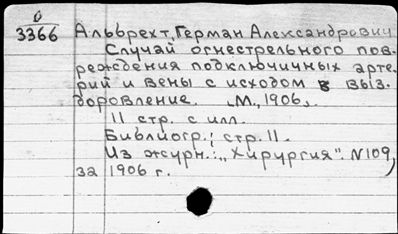 0
3366
Альбрехт, Герман Александрович
Случай огнестрельного пов-
реждения подключичных арте-
рий и вены с исходом в выз-
доровление. М., 1906.
11 стр. с илл.
Библиогр.: стр. 11.
Из журн.: „Хирургия". N109,
за 1906 г.